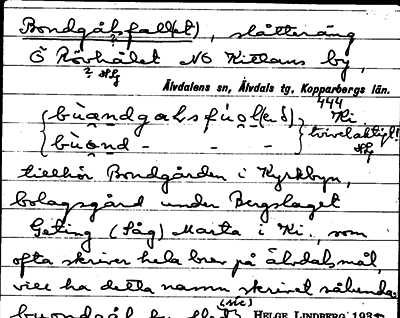 Bondgålsfall(et), slåtteräng
Ö Rövhålet NO Kitlans by,
? Hg
Älvdalens sn, Älvdals tg. Kopparbergs län.
444
bùandgalsfùol(eð) Ki.
tvivelaktigt!
Hg
bùond - - -
tillhör Bondgården i Kyrkbyn,
bolagsgård under Bergslaget
Geting (Såg) Marta i Ki., som
ofta skriver hela brev på älvdalsmål,
vill ha detta namn skrivet sålunda:
(sic)
HELGE LINDBERG 193